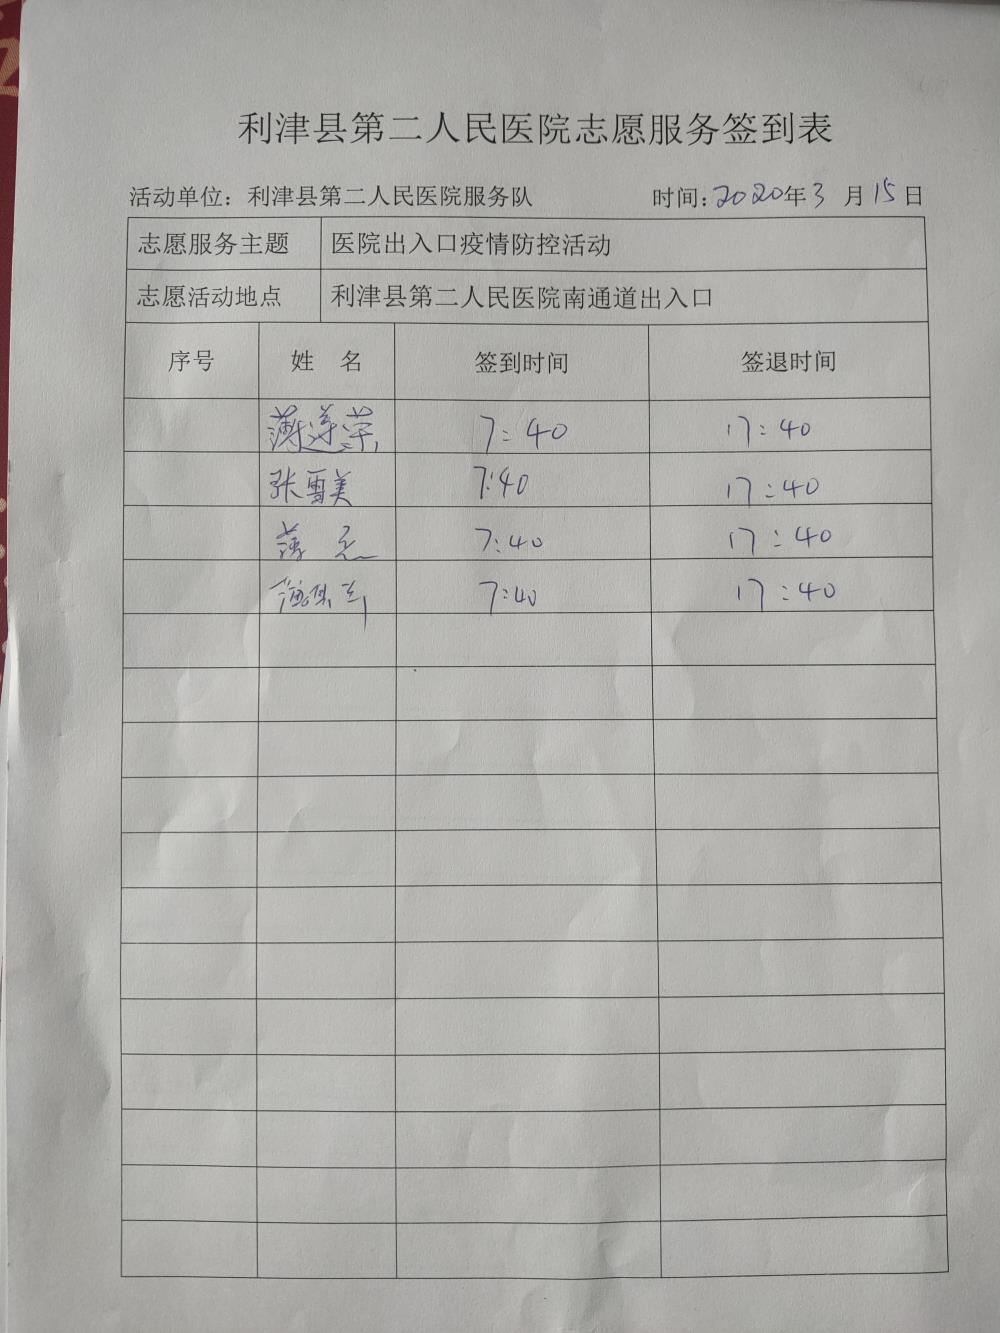 利津县第二人民医院志愿服务签到表
活动单位：利津县第二人民医院服务队 时间：2020年3月15日
志愿服务主题 医院出入口疫情防控活动
志愿活动地点 利津县第二人民医院南通道出入口
序号 姓 名 签到时间 签退时间
薄莲荣 7:40 17:40
张雪美 7:40 17:40
薄 7:40 17:40
7:40 17:40